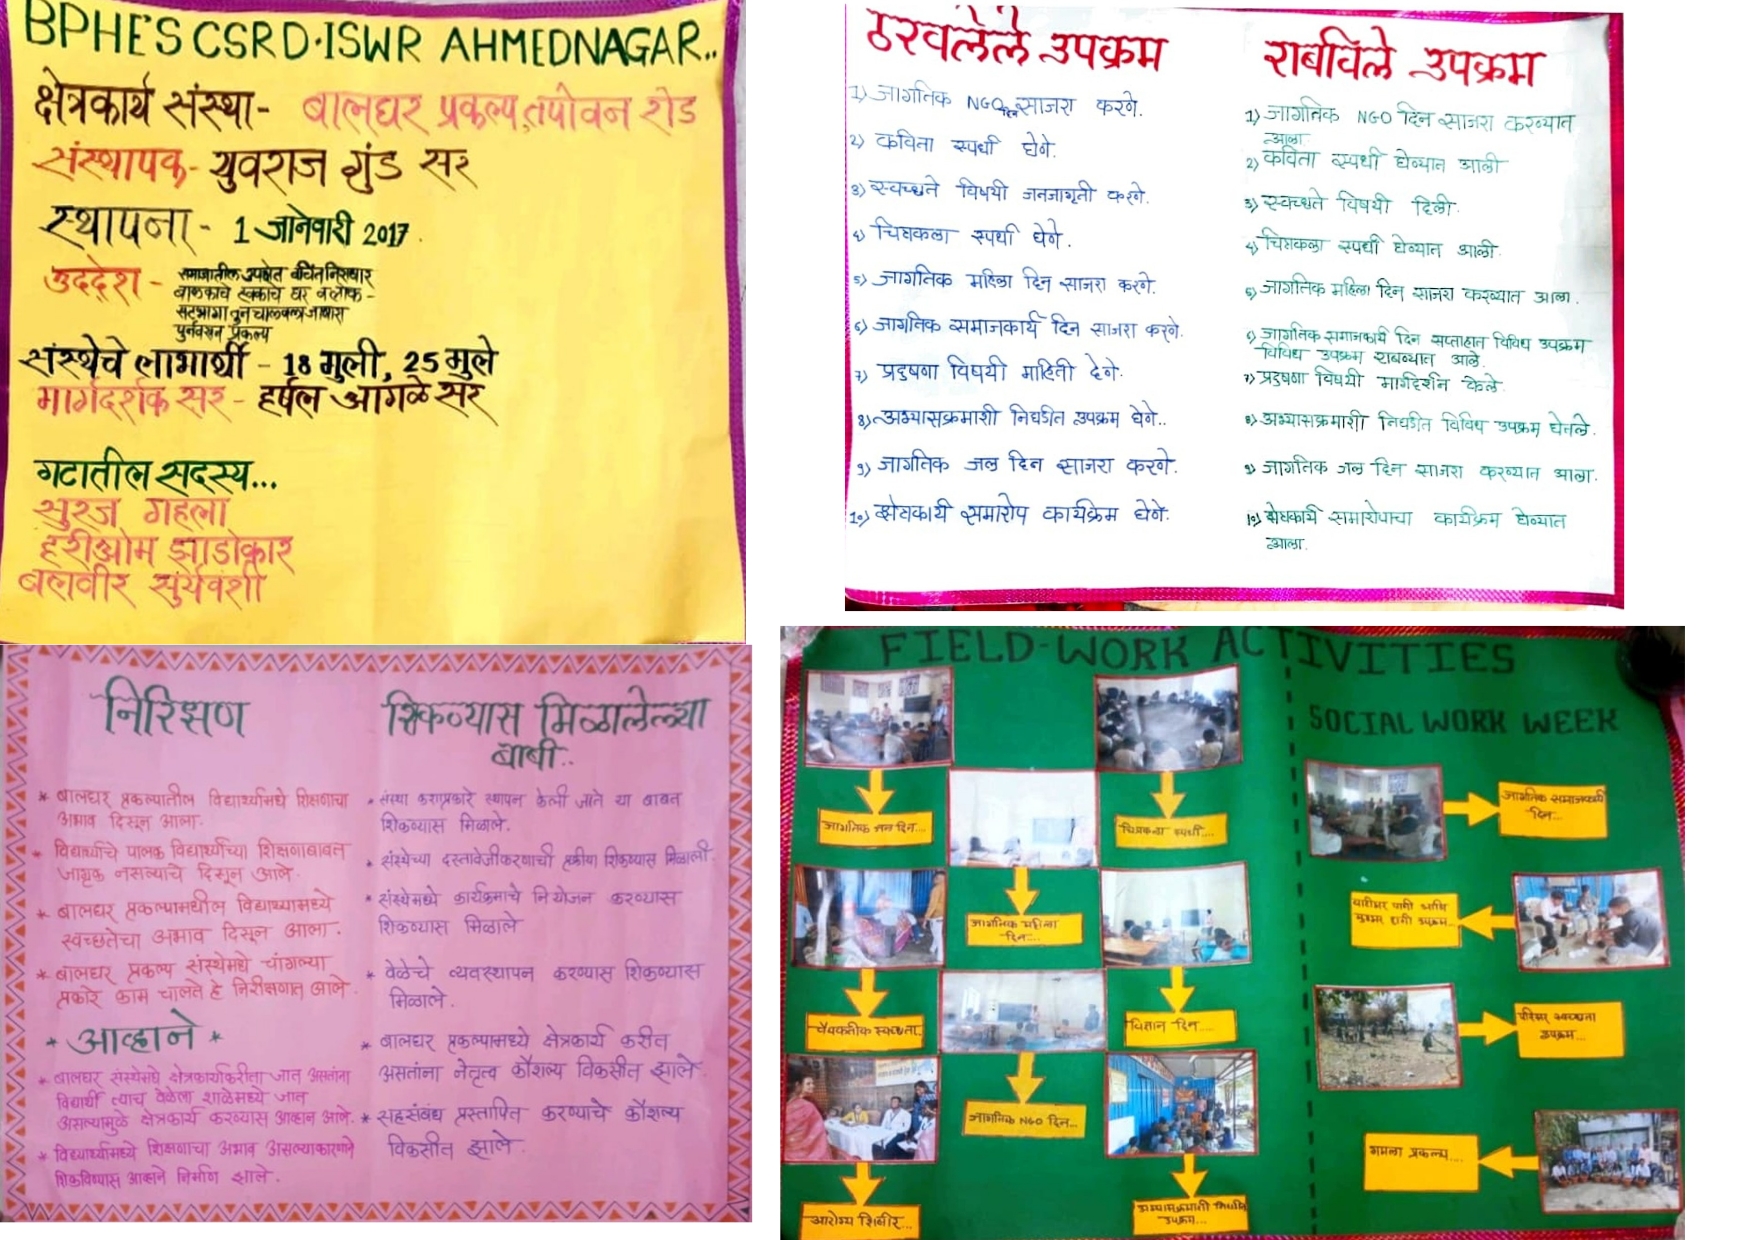 BPHE'S CSRD-ISWR AHMEDNAGAR..
क्षेत्रकार्य संस्था- बालघर प्रकल्प,तपोवन रोड
संस्थापक- युवराज गुंड सर
स्थापना- 1 जानेवारी 2017.
उद्देश-
समाजातील उपेक्षित वंचित निराधार
बालकांचे हक्काचे घर व लोक-
पुर्नवसन प्रकल्प
संस्थेचे लाभार्थी - 18 मुली, 25 मुले
मार्गदर्शक सर- हर्षल आगळे सर
गटातील सदस्य...
सुरज गहला
हरीओम झाडोकार
बलवीर सुर्यवंशी
ठरवलेले उपक्रम
1) जागतिक NGO दिन साजरा करणे.
2) कविता स्पर्धा घेणे.
3) स्वच्छते विषयी जनजागृती करणे.
4) चित्रकला स्पर्धा घेणे.
5) जागतिक महिला दिन साजरा करणे.
6) जागतिक समाजकार्य दिन साजरा करणे.
7) प्रदुषणा विषयी माहिती देणे.
8) अभ्यासक्रमाशी निगडीत उपक्रम घेणे..
9) जागतिक जल दिन साजरा करणे.
10) क्षेत्रकार्य समारोप कार्यक्रम घेणे.
राबविले उपक्रम
1) जागतिक NGO दिन साजरा करण्यात
आला
2) कविता स्पर्धा घेण्यात आली
3) स्वच्छते विषयी दिली.
4) चित्रकला स्पर्धा घेण्यात आली.
5) जागतिक महिला दिन साजरा करण्यात आला.
6) जागतिक समाजकार्य दिन सप्ताहात विविध उपक्रम
विविध उपक्रम राबव्यात आले.
7) प्रदुषणा विषयी मार्गदर्शन केले.
8) अभ्यासक्रमाशी निगडीत विविध उपक्रम घेतले.
9) जागतिक जल दिन साजरा करण्यात आला.
10) क्षेत्रकार्य समारोपाचा कार्यक्रम घेण्यात
आला.
निरिक्षण
* बालघर प्रकल्पातील विद्यार्थ्यांमधे शिक्षणाचा
अभाव दिसून आला.
* विद्यार्थ्यांचे पालक विद्यार्थ्यांच्या शिक्षणाबाबत
जागृक नसल्याचे दिसून आले.
* बालघर प्रकल्पामधील विद्यार्थ्यामध्ये
स्वच्छतेचा अभाव दिसून आला.
* बालघर प्रकल्प संस्थेमधे चांगल्या
प्रकारे काम चालते हे निरीक्षणात आले.
* आव्हाने *
* बालघर संस्थेमधे क्षेत्रकार्याकरीता जात असतांना
विद्यार्थी त्याच वेळेला शाळेमध्ये जात
असल्यामुळे क्षेत्रकार्य करण्यास आव्हान आले.
* विद्यार्थ्यांमध्ये शिक्षणाचा अभाव असल्याकारणाने
शिकविण्यास आव्हाने निर्माण झाले.
शिकण्यास मिळालेल्या
बाबी..
* संस्था कशाप्रकारे स्थापन केली जाते या बाबत
शिकण्यास मिळाले.
* संस्थेच्या दस्तावेजीकरणाची प्रक्रीया शिकण्यास मिळाली.
* संस्थेमध्ये कार्यक्रमाचे नियोजन करण्यास
शिकण्यास मिळाले
* वेळेचे व्यवस्थापन करण्यास शिकण्यास
मिळाले.
* बालघर प्रकल्पामध्ये क्षेत्रकार्य करीत
असतांना नेतृत्व कौशल्य विकसीत झाले.
* सहसंबंध प्रस्तापित करण्याचे कौशल्य
विकसीत झाले.
FIELD-WORK ACTIVITIES
जागतिक जल दिन...
चित्रकला स्पर्धा....
जागतिक महिला
दिन....
वैयक्तीक स्वच्छता
विज्ञान दिन.....
जागतिक NGO दिन...
आरोग्य शिबीर...
अभ्यासक्रमाशी निगडित
उपक्रम...
SOCIAL WORK WEEK
जागतिक समाजकार्य
दिन...
उपक्रम...
परिसर स्वच्छता
उपक्रम...
गमला प्रकल्प....